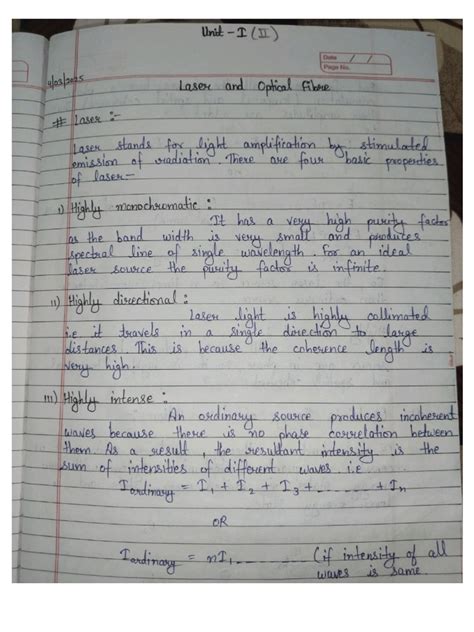 Unit - I (II)
Date / /
Page No.
4/03/2025
Laser and Optical Fibre
# Laser :-
Laser stands for light amplification by stimulated
emission of radiation. There are four basic properties
of laser-
i) Highly monochromatic :
It has a very high purity factor
as the band width is very small and produces
spectral line of single wavelength. For an ideal
laser source the purity factor is infinite.
ii) Highly directional :
Laser light is highly collimated
i.e it travels in a single direction to large
distances. This is because the coherence length is
very high.
iii) Highly intense :
An ordinary source produces incoherent
waves because there is no phase correlation between
them. As a result, the resultant intensity is the
sum of intensities of different waves i.e
Iordinary = I1 + I2 + I3 + ------ + In
OR
Iordinary = nI1 ------ (if intensity of all
waves is same.